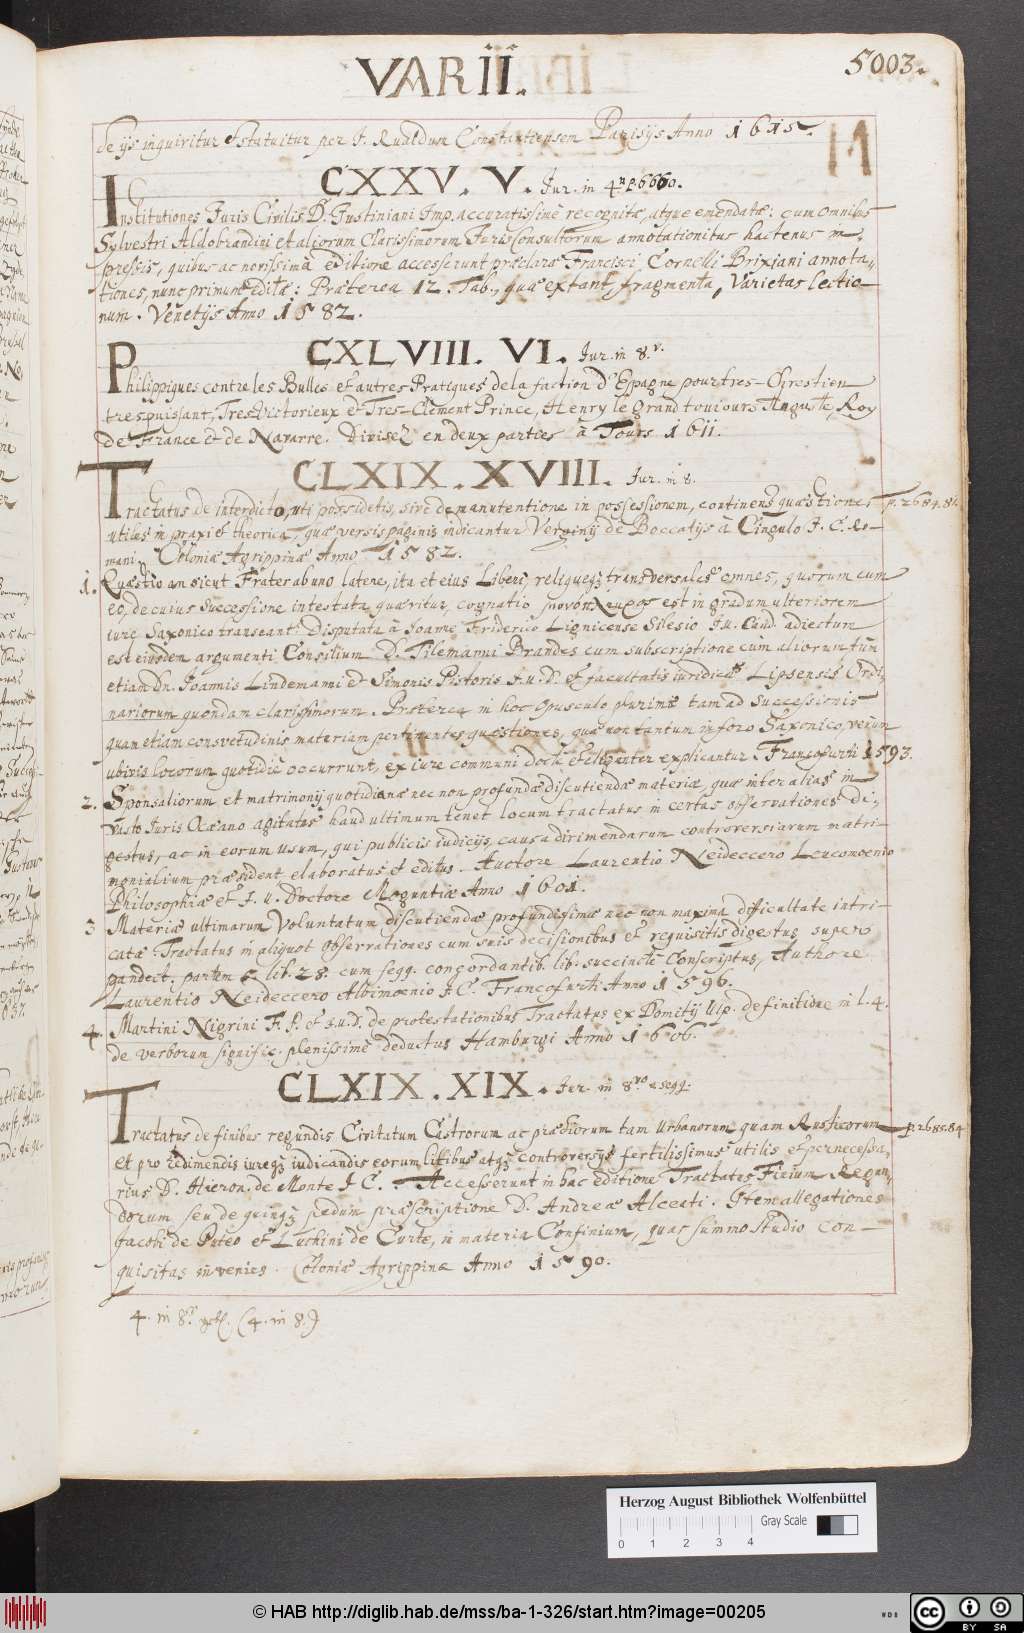 VARII.
5003.
de ijs inquiritur et statuitur per J. Rualdum Constantiensem Parisijs Anno 1615.
CXXV. V. Jur. in 4.º p. 6660.
Institutiones Juris Civilis D. Justiniani Imp. accuratissimè recognitæ, atque emendatæ: cum omnibus
Sylvestri Aldobrandini et aliorum Clarissimorum Jurisconsultorum annotationibus hactenus im-
pressis, quibus ac novissima editione accesserunt præclaræ Francisci Cornelli Brixiani annota-
tiones, nunc primum editæ: Præterea 12. Tab., quæ extant, fragmenta, Varietas lectio-
num. Venetijs Anno 1582.
CXLVIII. VI. Jur. in 8.v.
Philippiques contre les Bulles et autres Pratiques de la faction d'Espagne pour tres-Chrestien
trespuissant, Tres Victorieux et Tres-Clement Prince, Henry le Grand toujours Auguste, Roy
de France et de Navarre. Divisez en deux parties à Tours 1611.
CLXIX. XVIII. Jur. in 8.
Tractatus de interdicto, uti possidetis, sive de manutentione in possessionem, continens quæstiones p. 2684.85.
utiles in praxi et theorica, quæ versis paginis indicantur Verginij de Boccatijs à Cingulo J. C. Ro-
mani. Coloniæ Agrippinæ Anno 1582.
1. Quæstio an sicut Frater ab uno latere, ita et eius Liberi, reliqueq; transversales omnes, quorum cum
eo, de cuius successione intestata quæritur, cognatio est in gradum ulteriorem
iure Saxonico transeant? Disputata à Joanne Friderico Lignicense Silesio J.u. Cand. adiectum
est eiusdem argumenti Consilium D. Tilemanni Brandes cum subscriptione cum aliorum tùm
etiam Dn. Joannis Lindemanni et Simonis Pistoris J.u.D. et facultatis iuridicæ Lipsensis Ordi-
nariorum quondam clarissimorum. Præterea in hoc opusculo plurimæ tam ad Successionis
quam etiam consvetudinis materiam pertinentes quæstiones, quæ non tantum in foro Saxonico, verum
ubivis locorum quotidiè occurrunt, ex iure communi doctè et eleganter explicantur. Francofurti 1593.
2. Sponsaliorum et matrimonij quotidianæ nec non profundæ discutiendæ materiæ, quæ inter alias in
vasto Juris Oceano agitatas haud ultimum tenet locum tractatus in certas observationes di-
gestus, ac in eorum usum, qui publicis iudicijs, causa dirimendarum controversiarum matri-
monialium præsident elaboratus et editus. Auctore Laurentio Neideccero Leucomoenio
Philosophiæ et J. u. Doctore Moguntiæ Anno 1601.
3 Materiæ ultimarum Voluntatum discutiendæ profundissimæ nec non maxima difficultate intri-
catæ. Tractatus in aliquot observationes cum suis decisionibus et requisitis digestus super
pandect. partem 5. lib. 28. cum seqq. concordantib. lib. succinctè Conscriptus, Authore
Laurentio Neideccero Albimoenio J.C. Francofurti Anno 1596.
4. Martini Nigrini F. P. et J.u.D. de protestationibus Tractatus ex Domitij Ulp. definitione in L. 4.
de verborum signific. plenissimè deductus Hamburgi Anno 1606.
CLXIX. XIX. Jur. in 8.vo et seqq:
Tractatus de finibus regundis Civitatum Castrorum ac prædiorum tam Urbanorum quam Rusticorum p. 2685.84
et pro redimendis iureq; iudicandis eorum litibus atq; controversijs fertilissimus utilis et pernecessa-
rius D. Hieron. de Monte J C. Accesserunt in hac editione Tractatus Finium Regun-
dorum seu de quinq; pedum præscriptione D. Andreæ Alceati. Item allegationes
Jacobi de Puteo et Luchini de Curte, in materia Confinium, quas summo studio con-
quisitas invenies. Coloniæ Agrippinæ Anno 1590.
4. in 8.º (4. in 8.)
Herzog August Bibliothek Wolfenbüttel
Gray Scale
0 1 2 3 4
© HAB http://diglib.hab.de/mss/ba-1-326/start.htm?image=00205
WDB
CC BY SA